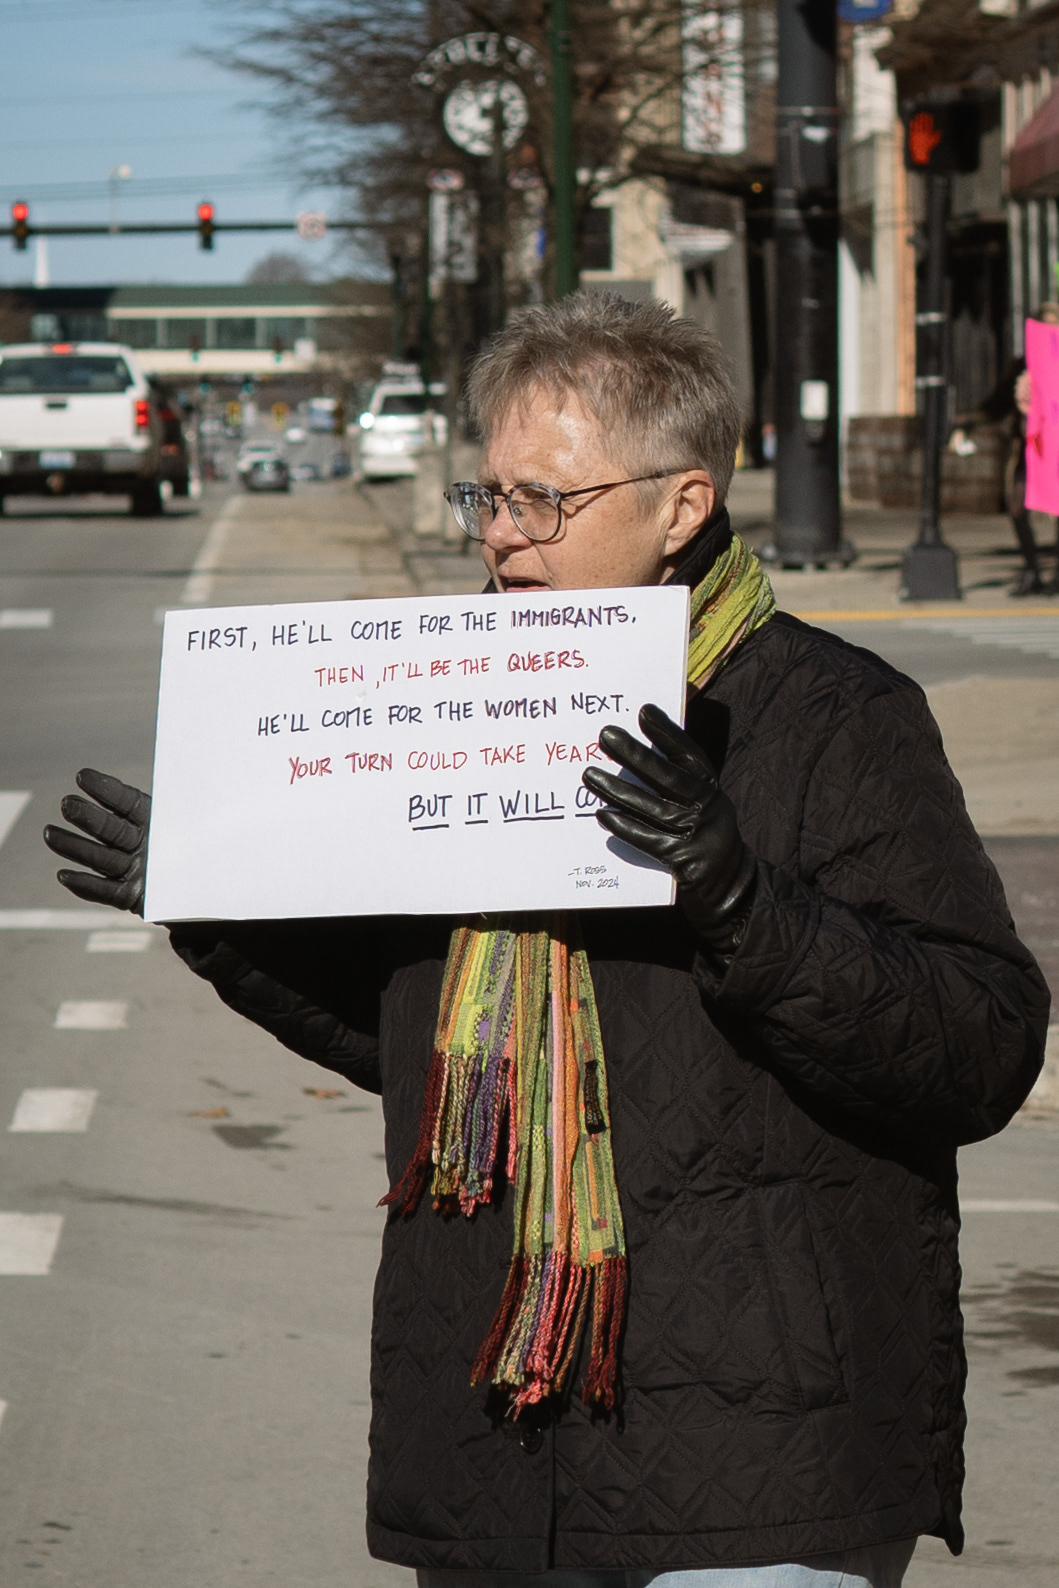 FIRST, HE'LL COME FOR THE IMMIGRANTS.
THEN, IT'LL BE THE QUEERS.
HE'LL COME FOR THE WOMEN NEXT.
YOUR TURN COULD TAKE YEAR
BUT IT WILL CO
-T. ROSS
NOV. 2024